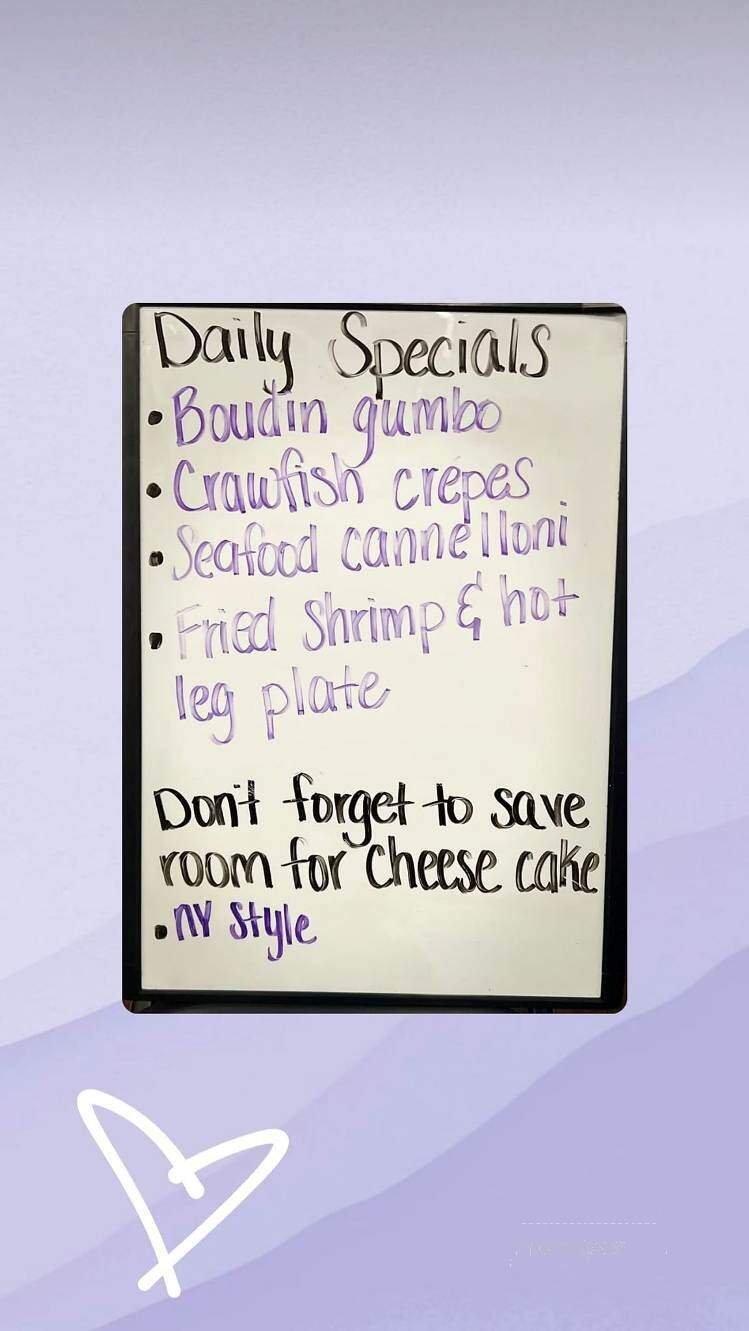 Daily Specials
• Boudin gumbo
• Crawfish crepes
• Seafood cannelloni
• Fried Shrimp & hot
leg plate
Don't forget to save
room for Cheese cake
• NY Style